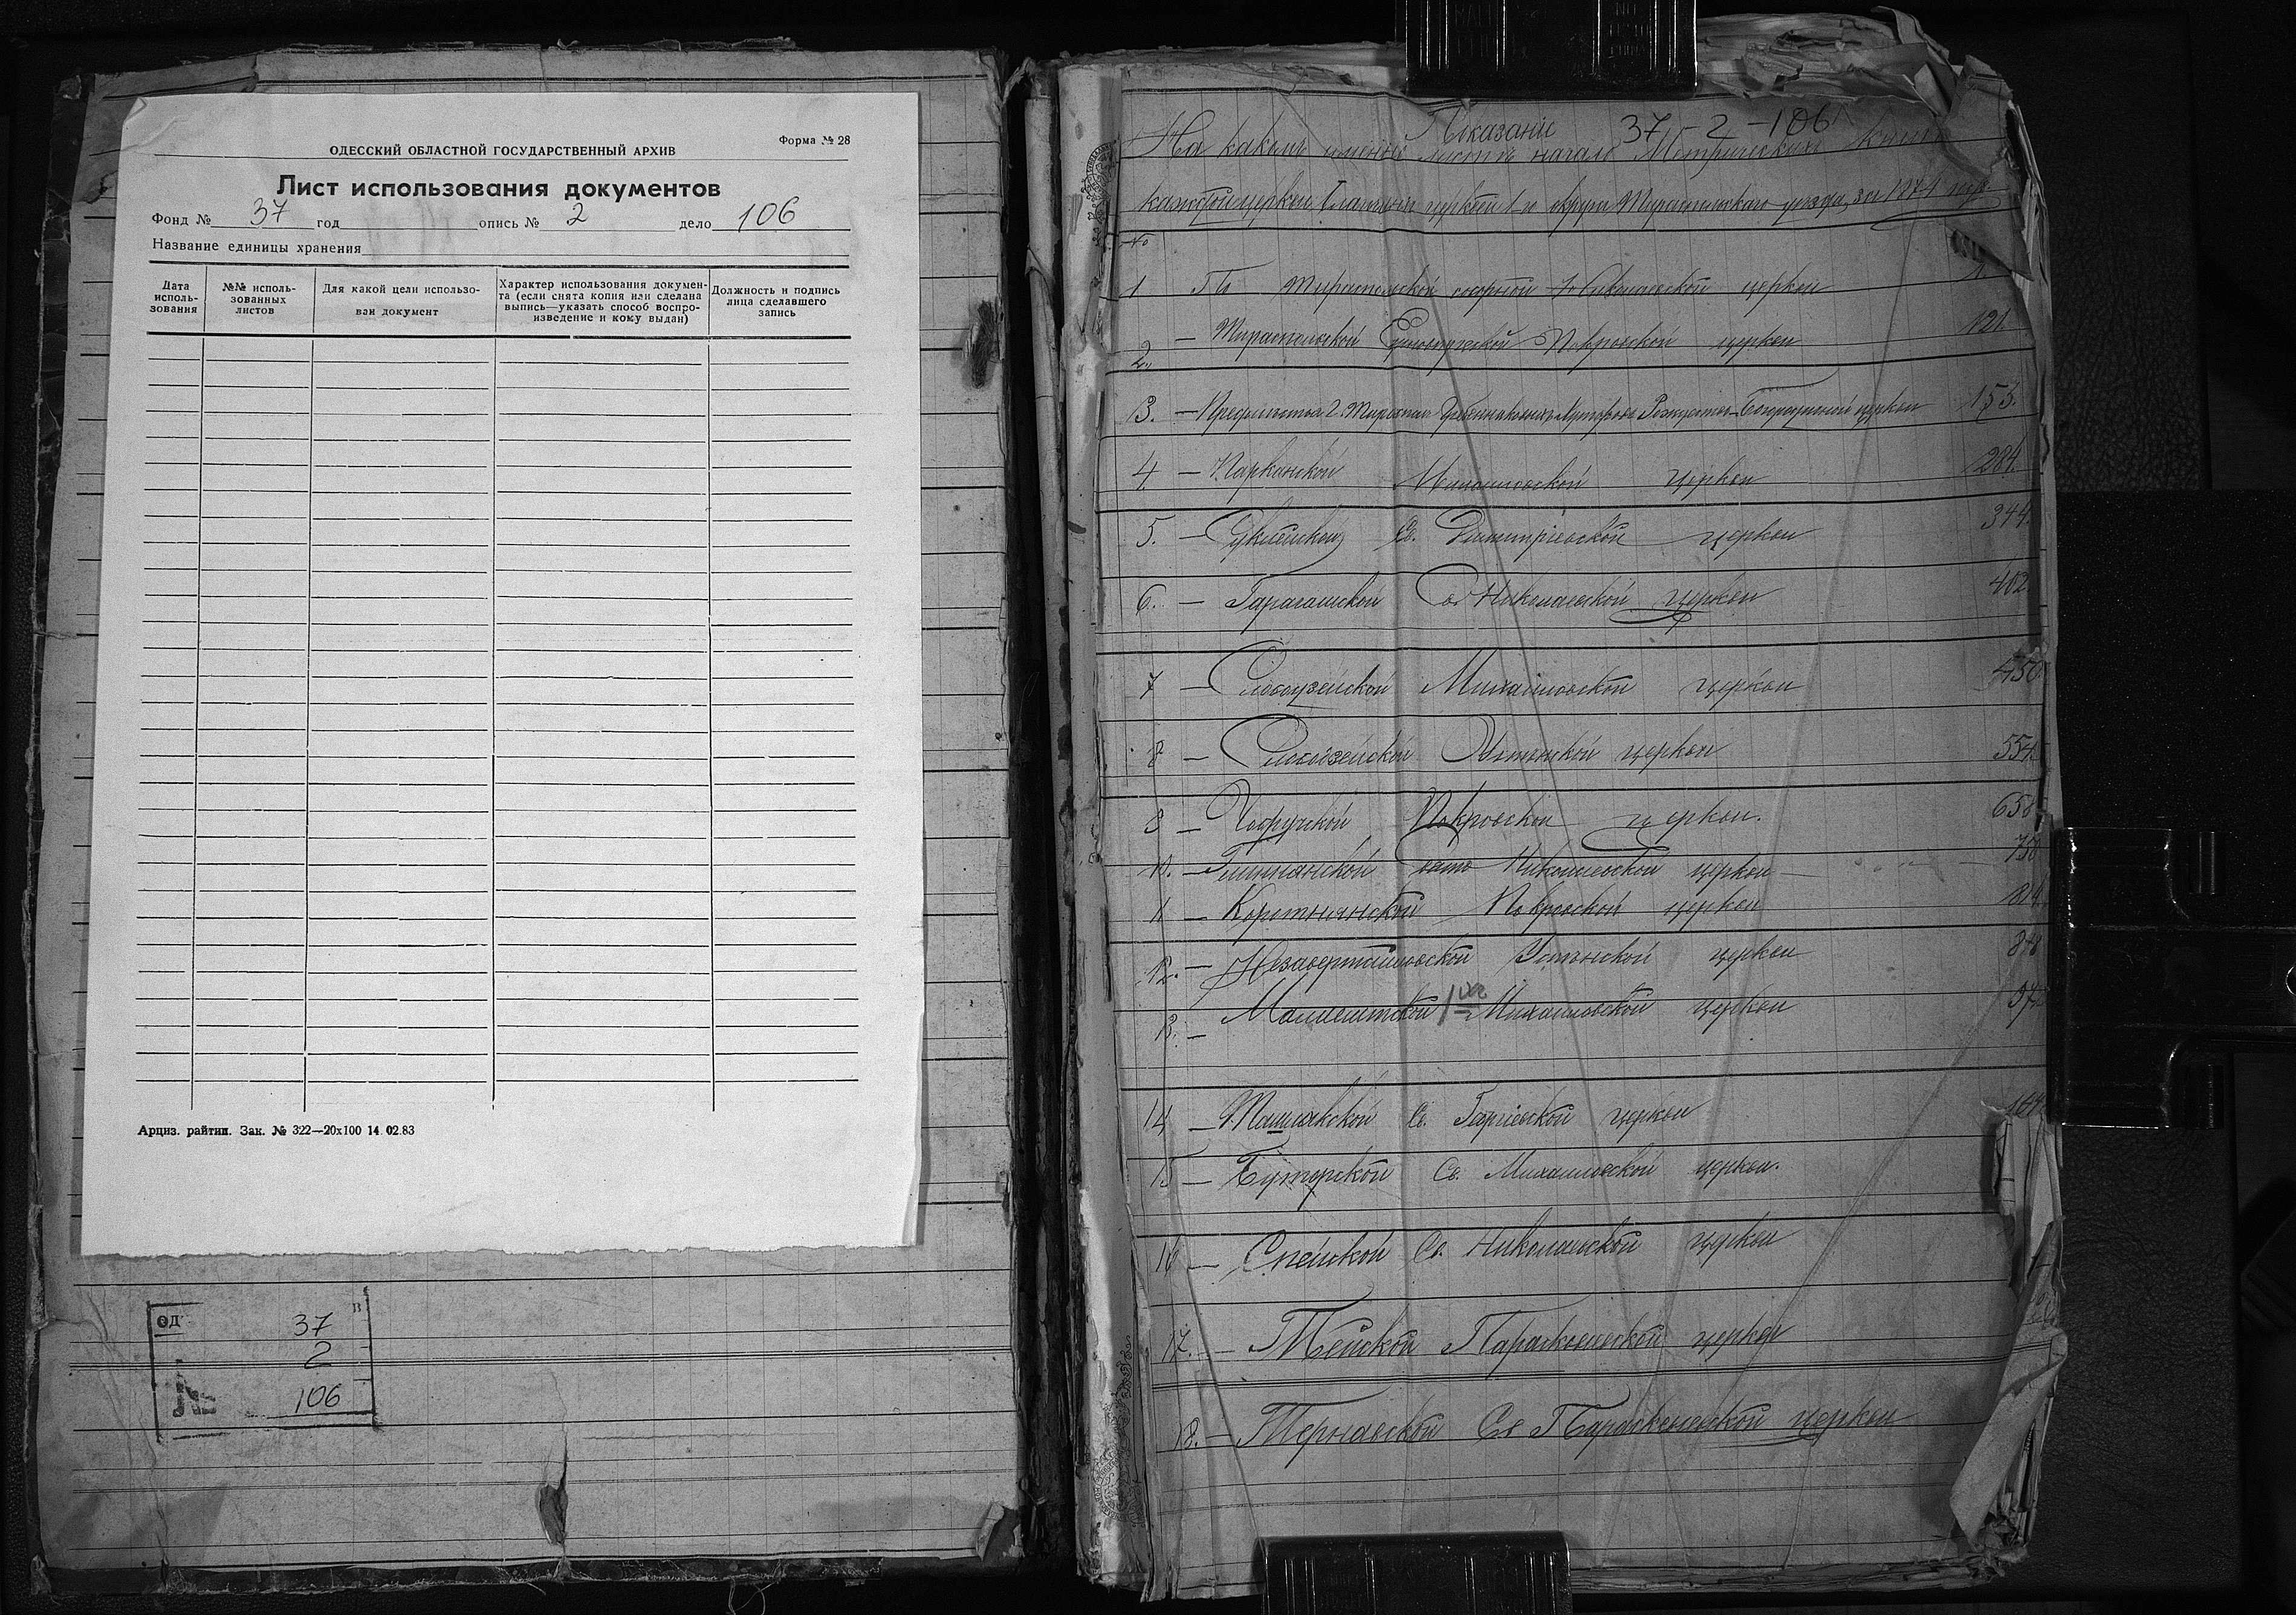 Форма № 28
ОДЕССКИЙ ОБЛАСТНОЙ ГОСУДАРСТВЕННЫЙ АРХИВ
Лист использования документов
Фонд № 37 год опись № 2 дело 106
Название единицы хранения
Дата исполь-
зования
№№ исполь-
зованных
листов
Для какой цели использо-
ван документ
Характер использования докумен-
та (если снята копия или сделана
выпись—указать способ воспро-
изведение и кому выдан)
Должность и подпись
лица сделавшего
запись
Арциз. райтип. Зак. № 322—20х100 14.02.83
ОД
37
2
№ 106
Показание 37-2-106
На какомъ именно листѣ начало Метрическихъ
каждой церкви церкви 1 го округа Тираспольскаго уѣзда, за 1874 годъ.
№
1 Тираспольской соборной Николаевской церкви 1.
2. — Тираспольской Единовѣрческой Покровской церкви 121.
3. — Предмѣстья г. Тирасполя Рождество-Богородичной церкви 153.
4 — Парканской Михайловской церкви 284.
5. — Суклейской Св. Димитріевской церкви 344.
6. — Карагашской Св. Николаевской церкви 402.
7 — Слободзейской Михайловской церкви 450.
8 — Слободзейской Успѣнской церкви 554.
9 — Чобручской Покровской церкви. 658
10. — Глиннянской Свято Николаевской церкви — 750
11 — Коротнянской Покровской церкви 814.
12. — Незавертайловской Успѣнской церкви 878
13. — Малаештской Михайловской церкви
14 — Ташлыкской Св. Георгіевской церкви
15 — Буторской Св. Михайловской церкви.
16 — Спейской Св. Николаевской церкви
17. — Тейской Параскевіевской церкви
18. — Терновской Св. Параскевіевской церкви